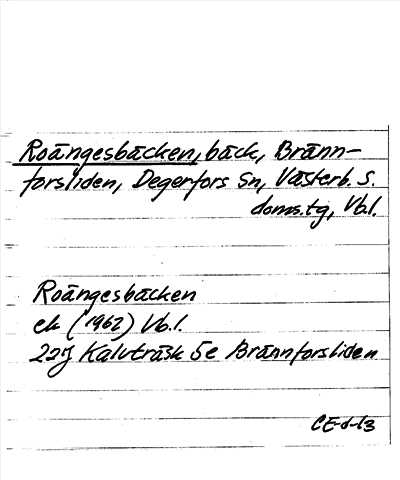 Roängesbäcken, bäck, Bränn-
forsliden, Degerfors Sn, Västerb. S.
doms.tg, Vb.l.
Roängesbäcken
ek (1962) Vb.l.
22J Kalvträsk 5e Brännforsliden